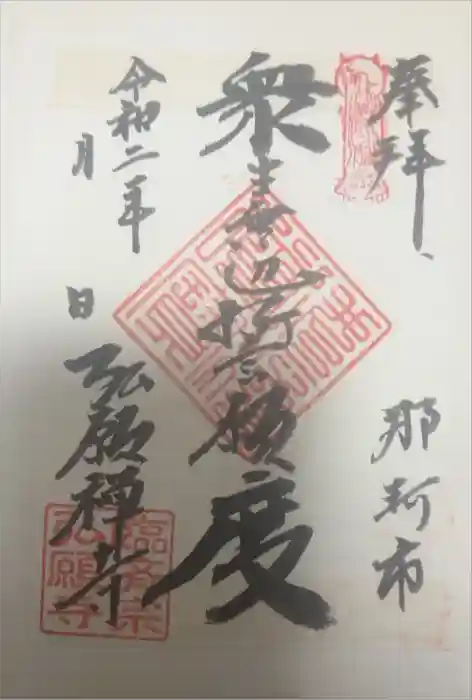 奉拝、
那珂市
衆生無辺誓願度
令和二年
月
日
弘願禅寺
臨済宗
弘願寺